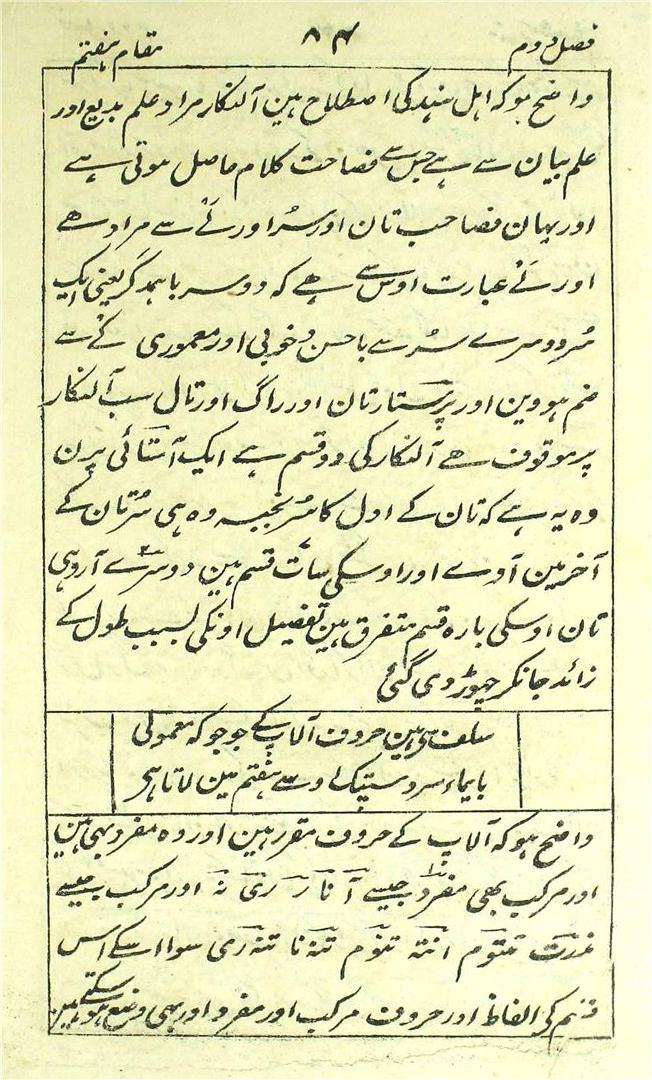 فصل دوم ۸۴ مقام ہفتم
واضح ہو کہ اہل ہند کی اصطلاح مین آلنکار مراد علم بدیع اور
علم بیان سے ہے جس سے فصاحت کلام حاصل ہوتی ہے
اور یہان فصاحت تان اور سُر اور لَے سے مراد ھے
اور لَے عبارت اوس سے ھے کہ دو سر باہمدگر یعنی ایک
سُر دوسرے سُر سے باحسن و خوبی اور معموری کے سے
ضم ہووین اور پرستار تان اور راگ اور تال سب آلنکار
پر موقوف ھے آلنکار کی دو قسم ہے ایک آستائی برن
وہ یہ ہے کہ تان کے اول کا سُر بجنسہ وہ ہی سُر تان کے
آخر مین آوے اور اوسکی سات قسم ہین دوسرے آروہی
تان اوسکی بارہ قسم متفرق ہین تفصیل اونکی بسبب طول کے
زائد جانکر چھوڑ دی گئی
سلف سی ہین حروف آلاپ کے جو جو کہ معمولی
بایماء سر و ستیک اوسے ہفتم مین لاتا ہی
واضح ہو کہ آلاپ کے حروف مقرر ہین اور وہ مفرد بھی ہین
اور مرکب بھی مفرد جیسے آ نا ر ری نہ اور مرکب جیسے
تنتوم انتہ تنوم تنہ نا تنہ ری سوا اسکے اس
قسم کی الفاظ اور حروف مرکب اور مفرد اور بھی وضع ہو سکتے ہین